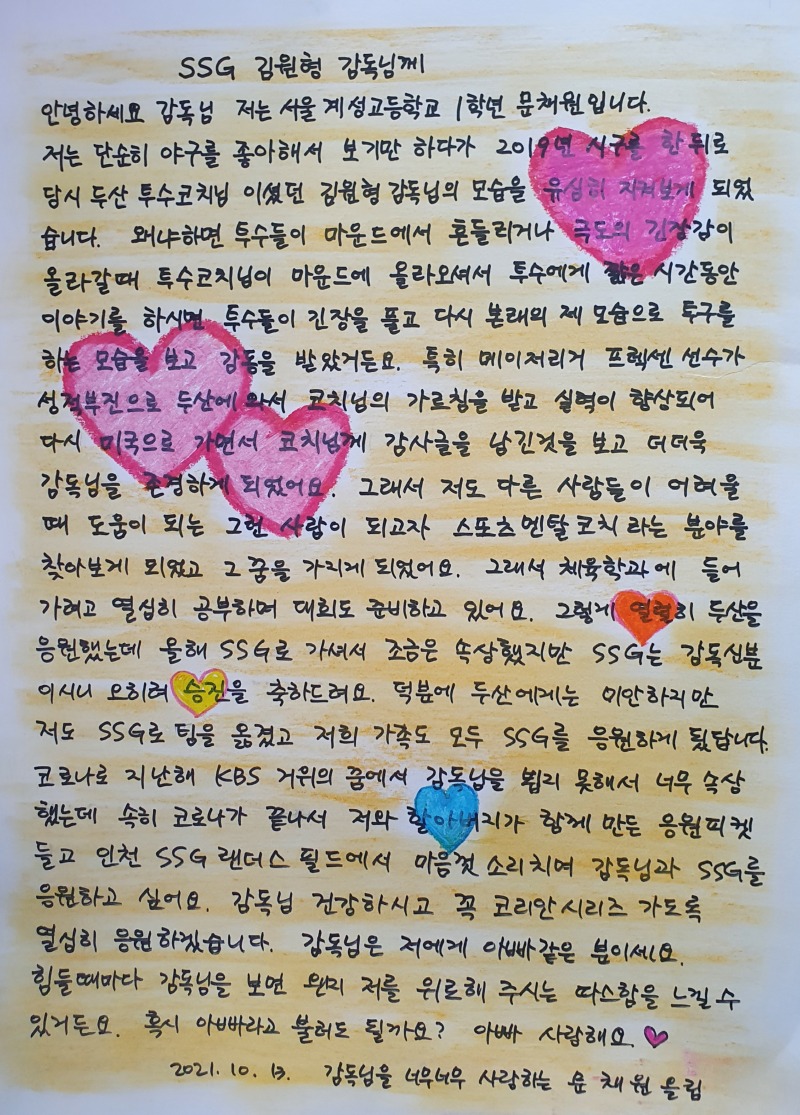 SSG 김원형 감독님께
안녕하세요 감독님 저는 서울 계성고등학교 1학년 문채원입니다.
저는 단순히 야구를 좋아해서 보기만 하다가 2019년 시구를 한 뒤로
당시 두산 투수코치님 이셨던 김원형 감독님의 모습을 유심히 지켜보게 되었
습니다. 왜냐하면 투수들이 마운드에서 흔들리거나 극도의 긴장감이
올라갈때 투수코치님이 마운드에 올라오셔서 투수에게 짧은 시간동안
이야기를 하시면 투수들이 긴장을 풀고 다시 본래의 제 모습으로 투구를
하는 모습을 보고 감동을 받았거든요. 특히 메이저리거 프렉센 선수가
성적부진으로 두산에 와서 코치님의 가르침을 받고 실력이 향상되어
다시 미국으로 가면서 코치님께 감사글을 남긴것을 보고 더더욱
감독님을 존경하게 되었어요. 그래서 저도 다른 사람들이 어려울
때 도움이 되는 그런 사람이 되고자 스포츠멘탈코치 라는 분야를
찾아보게 되었고 그 꿈을 가지게 되었어요. 그래서 체육학과에 들어
가려고 열심히 공부하며 대회도 준비하고 있어요. 그렇게 열렬히 두산을
응원했는데 올해 SSG로 가셔서 조금은 속상했지만 SSG는 감독신분
이시니 오히려 승진을 축하드려요. 덕분에 두산에게는 미안하지만
저도 SSG로 팀을 옮겼고 저희 가족도 모두 SSG를 응원하게 됬답니다.
코로나로 지난해 KBS 거위의 꿈에서 감독님을 뵙지 못해서 너무 속상
했는데 속히 코로나가 끝나서 저와 할아버지가 함께 만든 응원피켓
들고 인천 SSG 랜더스 필드에서 마음껏 소리치며 감독님과 SSG를
응원하고 싶어요. 감독님 건강하시고 꼭 코리안시리즈 가도록
열심히 응원하겠습니다. 감독님은 저에게 아빠같은 분이세요.
힘들때마다 감독님을 보면 왠지 저를 위로해 주시는 따스함을 느낄 수
있거든요. 혹시 아빠라고 불러도 될까요? 아빠 사랑해요.
2021. 10. 13. 감독님을 너무너무 사랑하는 문 채원 올림